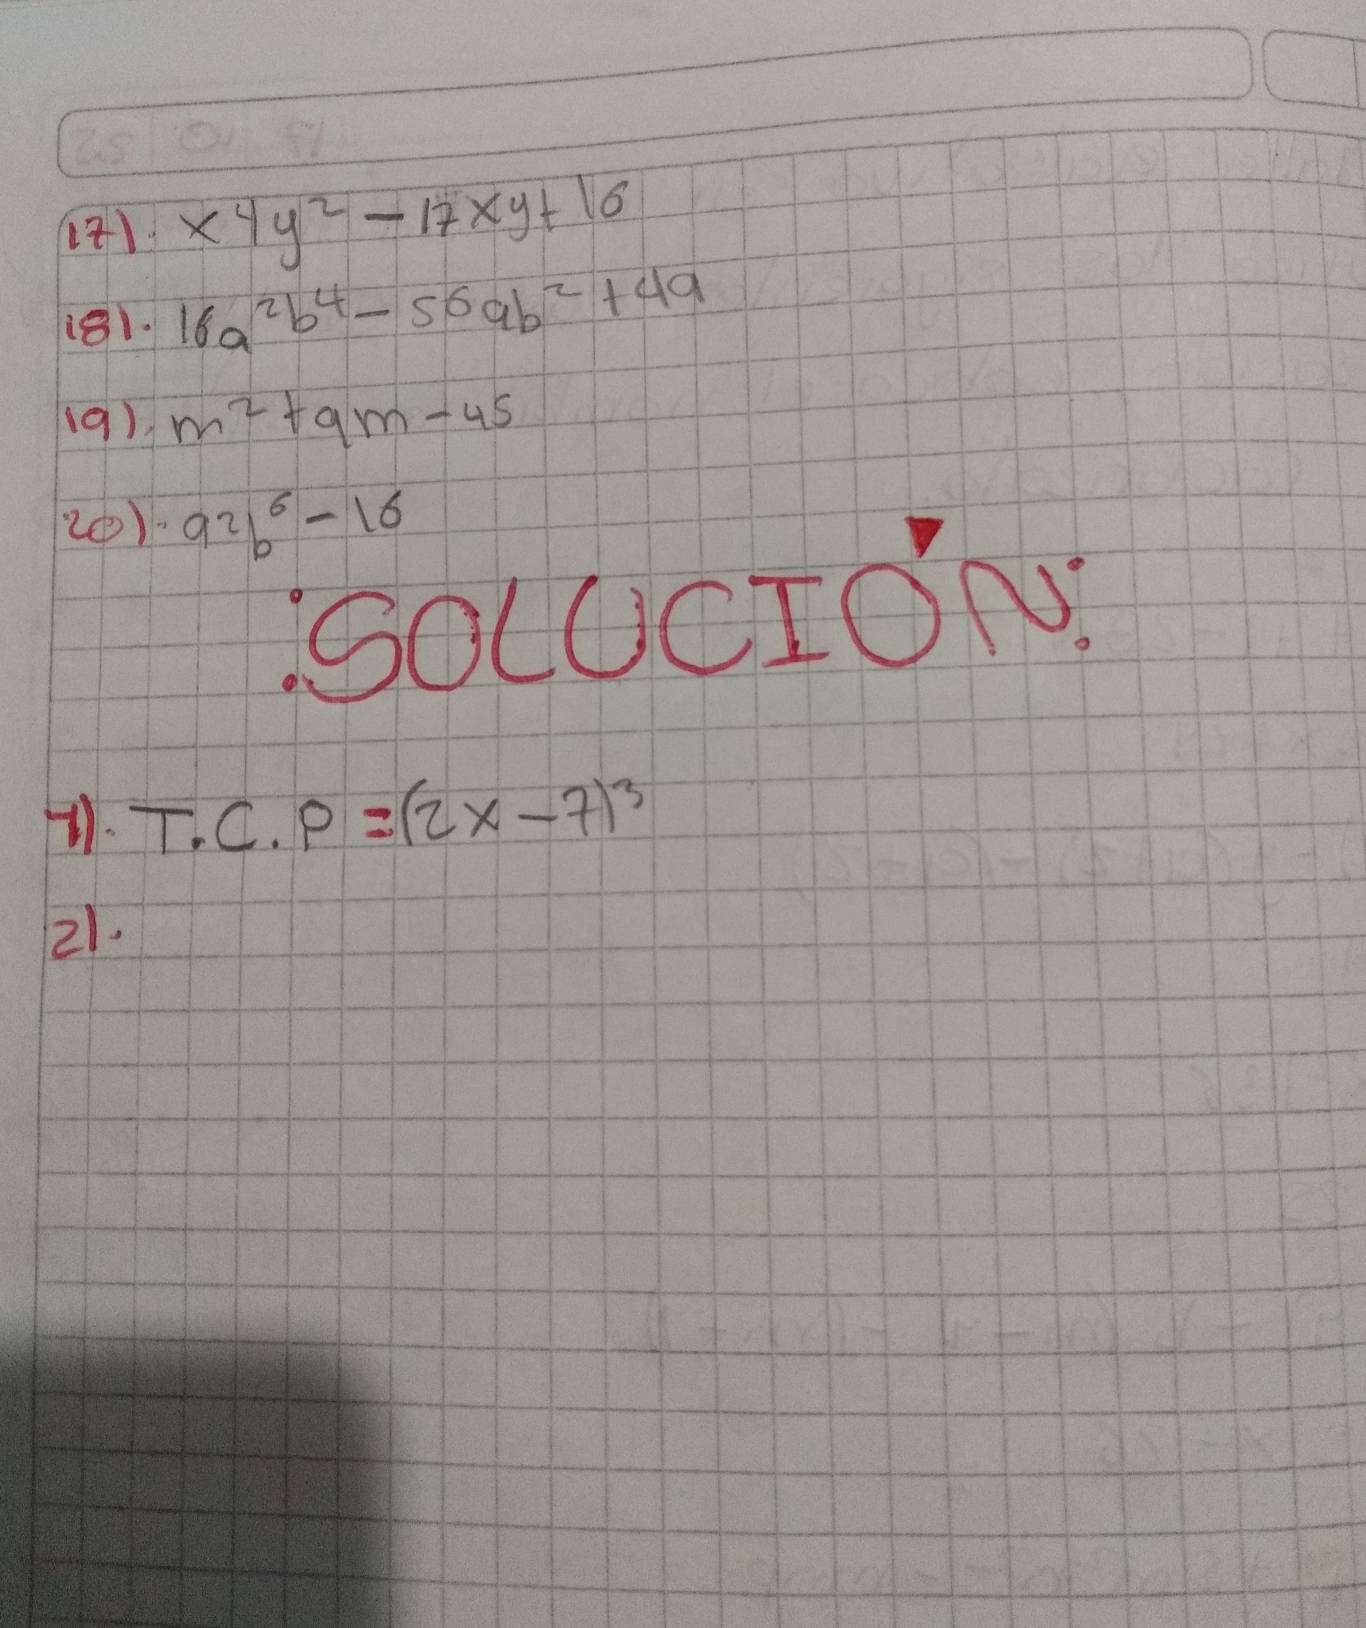 17). x⁴y² - 17xy + 16
18). 16a²b⁴ - 56ab² + 49
19). m² + 9m - 45
20). a²b⁶ - 16
:SOLUCIÓN:
1). T.C.P = (2x - 7)³
2).